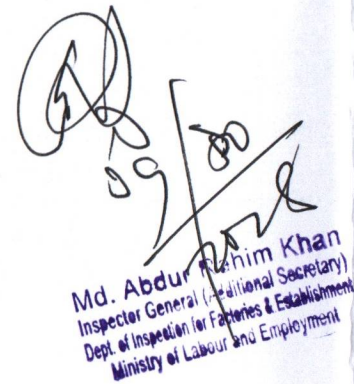 09
Md. Abdur Rahim Khan
Inspector General (Additional Secretary)
Dept. of Inspection for Factories & Establishment
Ministry of Labour and Employment